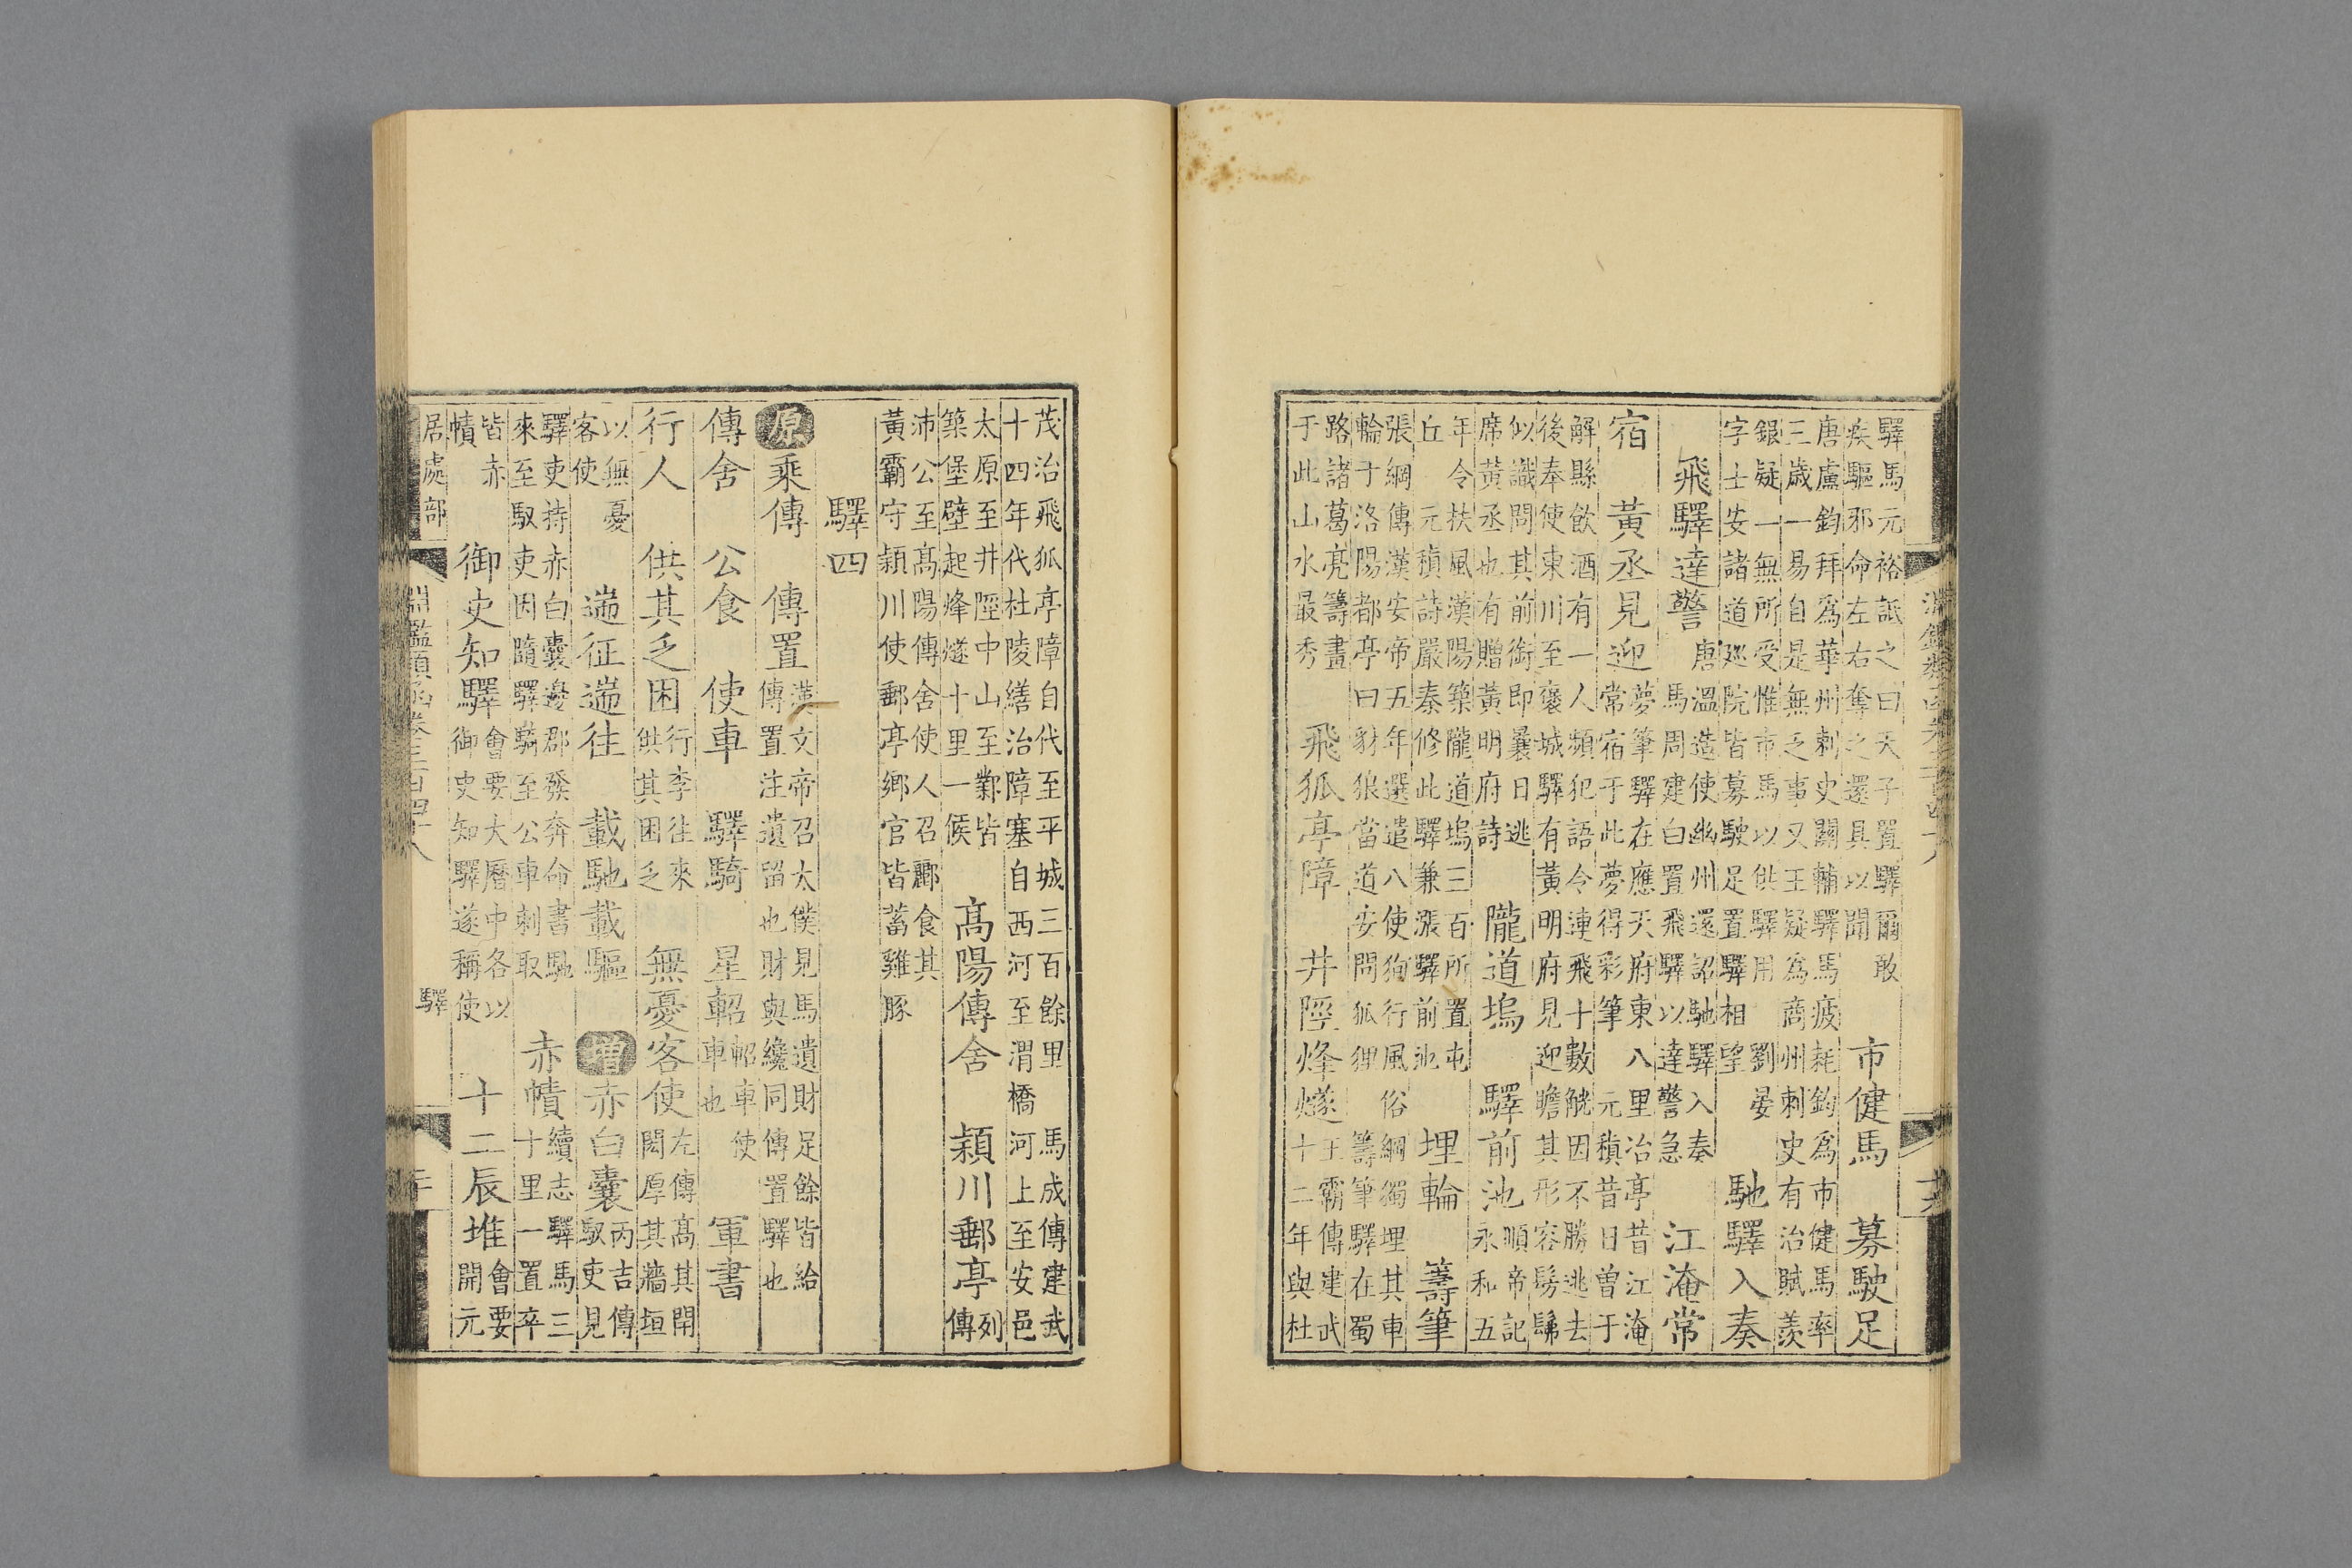 驛馬元裕詆之曰天子置驛爾敢
疾驅邪命左右奪之還具以聞
市健馬　募駛足
唐盧鈞拜為華州刺史關輔驛馬疲耗鈞為市健馬率
三歲一易自是無乏事又王疑為商州刺史有治賦羨
銀疑一無所受惟市馬以供驛用　劉晏
字士安諸道廵院皆募駛足置驛相望
馳驛入奏
飛驛達警
唐溫造使幽州還詔馳驛入奏
馬周建白置飛驛以達警急
江淹常
宿　黃丞見迎
夢筆驛在應天府東八里冶亭昔江淹
常宿于此夢得彩筆　元稹昔日曾于
解縣飲酒有一人頻犯語令連飛十數觥因不勝逃去
後奉使東川至褒城驛有黃明府見迎瞻其形容髣髴
似識問其前銜即曩日逃
席黃丞也有贈黃明府詩
隴道塢　驛前池
順帝記
永和五
年令扶風漢陽築隴道塢三百所置屯
丘　元稹詩嚴秦修此驛兼漲驛前池
埋輪　籌筆
張綱傳漢安帝五年選遣八使狥行風俗　綱獨埋其車
輪于洛陽都亭曰豺狼當道安問狐狸　籌筆驛在蜀
路諸葛亮籌畫
于此山水最秀
飛狐亭障　井陘烽燧
王霸傳建武
十二年與杜
茂治飛狐亭障自代至平城三百餘里　馬成傳建武
十四年代杜陵繕治障塞自西河至渭橋河上至安邑
太原至井陘中山至鄴皆
築堡壁起烽燧十里一候
高陽傳舍　潁川郵亭
列
傳
沛公至高陽傳舍使人召酈食其
黃霸守潁川使郵亭鄉官皆蓄雞豚
驛四
原 乘傳　傳置
漢文帝召太僕見馬遺財足餘皆給
傳置注遺留也財與纔同傳置驛也
傳舍　公食　使車　驛騎　星軺
軺車使
車也
軍書
行人　供其乏困
行李往來
供其困乏
無憂客使
左傳高其閈
閎厚其牆垣
以無憂
客使
遄征遄往　載馳載驅　增 赤白囊
丙吉傳
馭吏見
驛吏持赤白囊邊郡發奔命書馳
來至馭吏因隨驛騎至公車刺取
赤幘
續志驛馬三
十里一置卒
皆赤
幘
御史知驛
會要大曆中各以
御史知驛遂稱使
十二辰堆
會要
開元
居處部
淵鑑類函卷三百四十八
驛